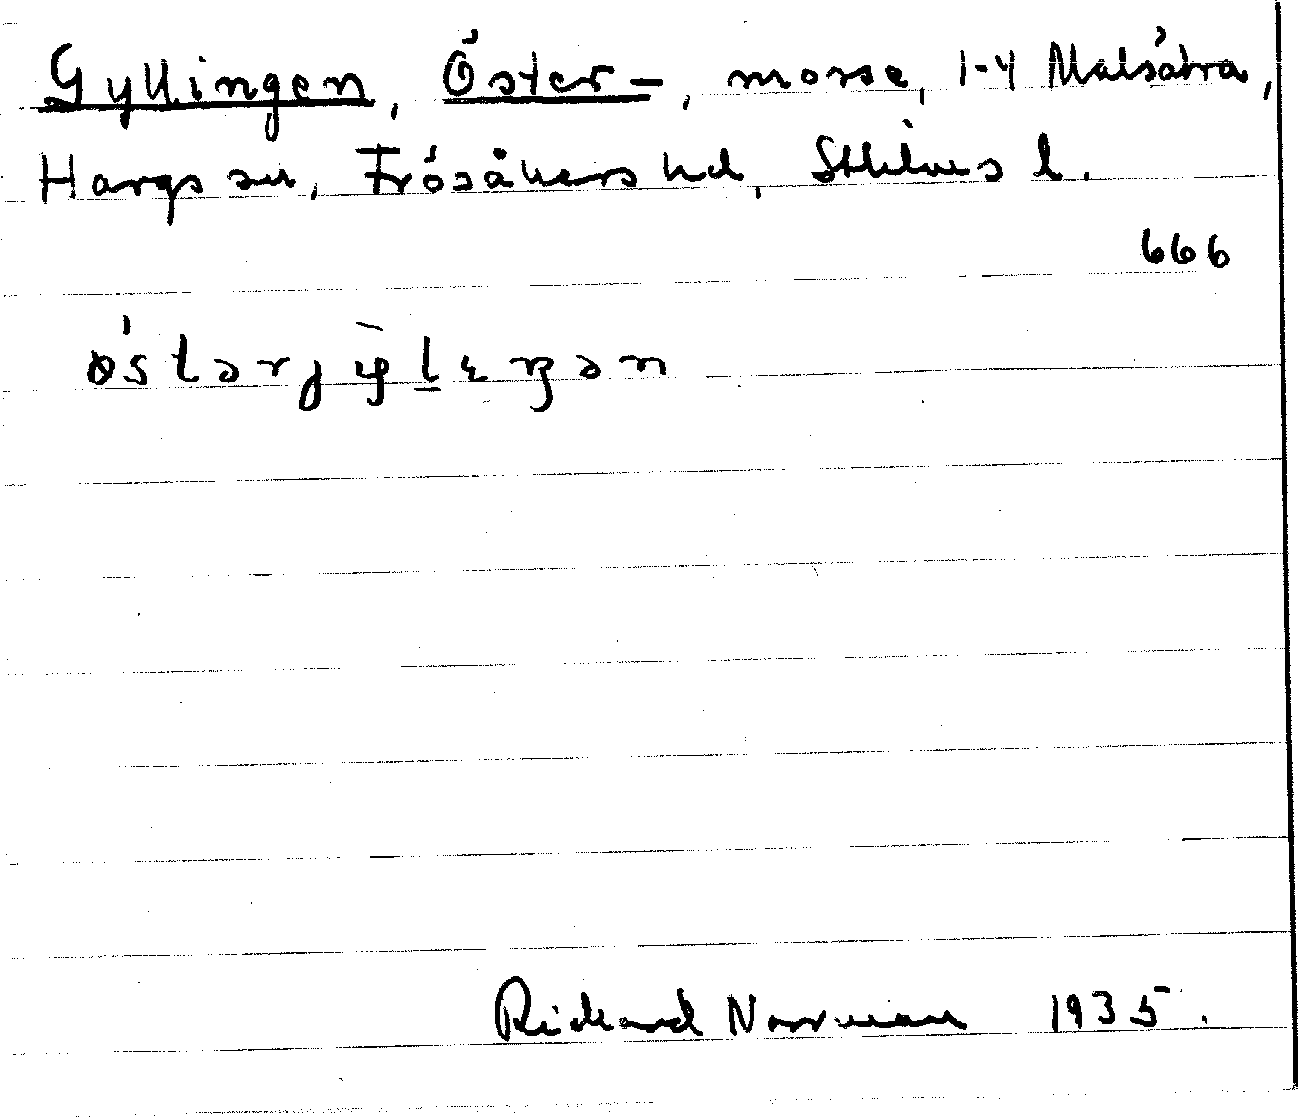 Gyllingen, Öster-, mosse, 1-4 Malsätra,
Hargs sn, Frösåkers hd, Sthlms l.
666
Richard Norrman 1935.